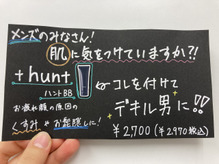 メンズのみなさん！
肌に気をつけていますか？！
+hunt+
ハントBB
コレを付けて
お疲れ顔の原因の
くすみやお髭隠しに！
デキル男に!!
¥2,700（¥2,970税込）